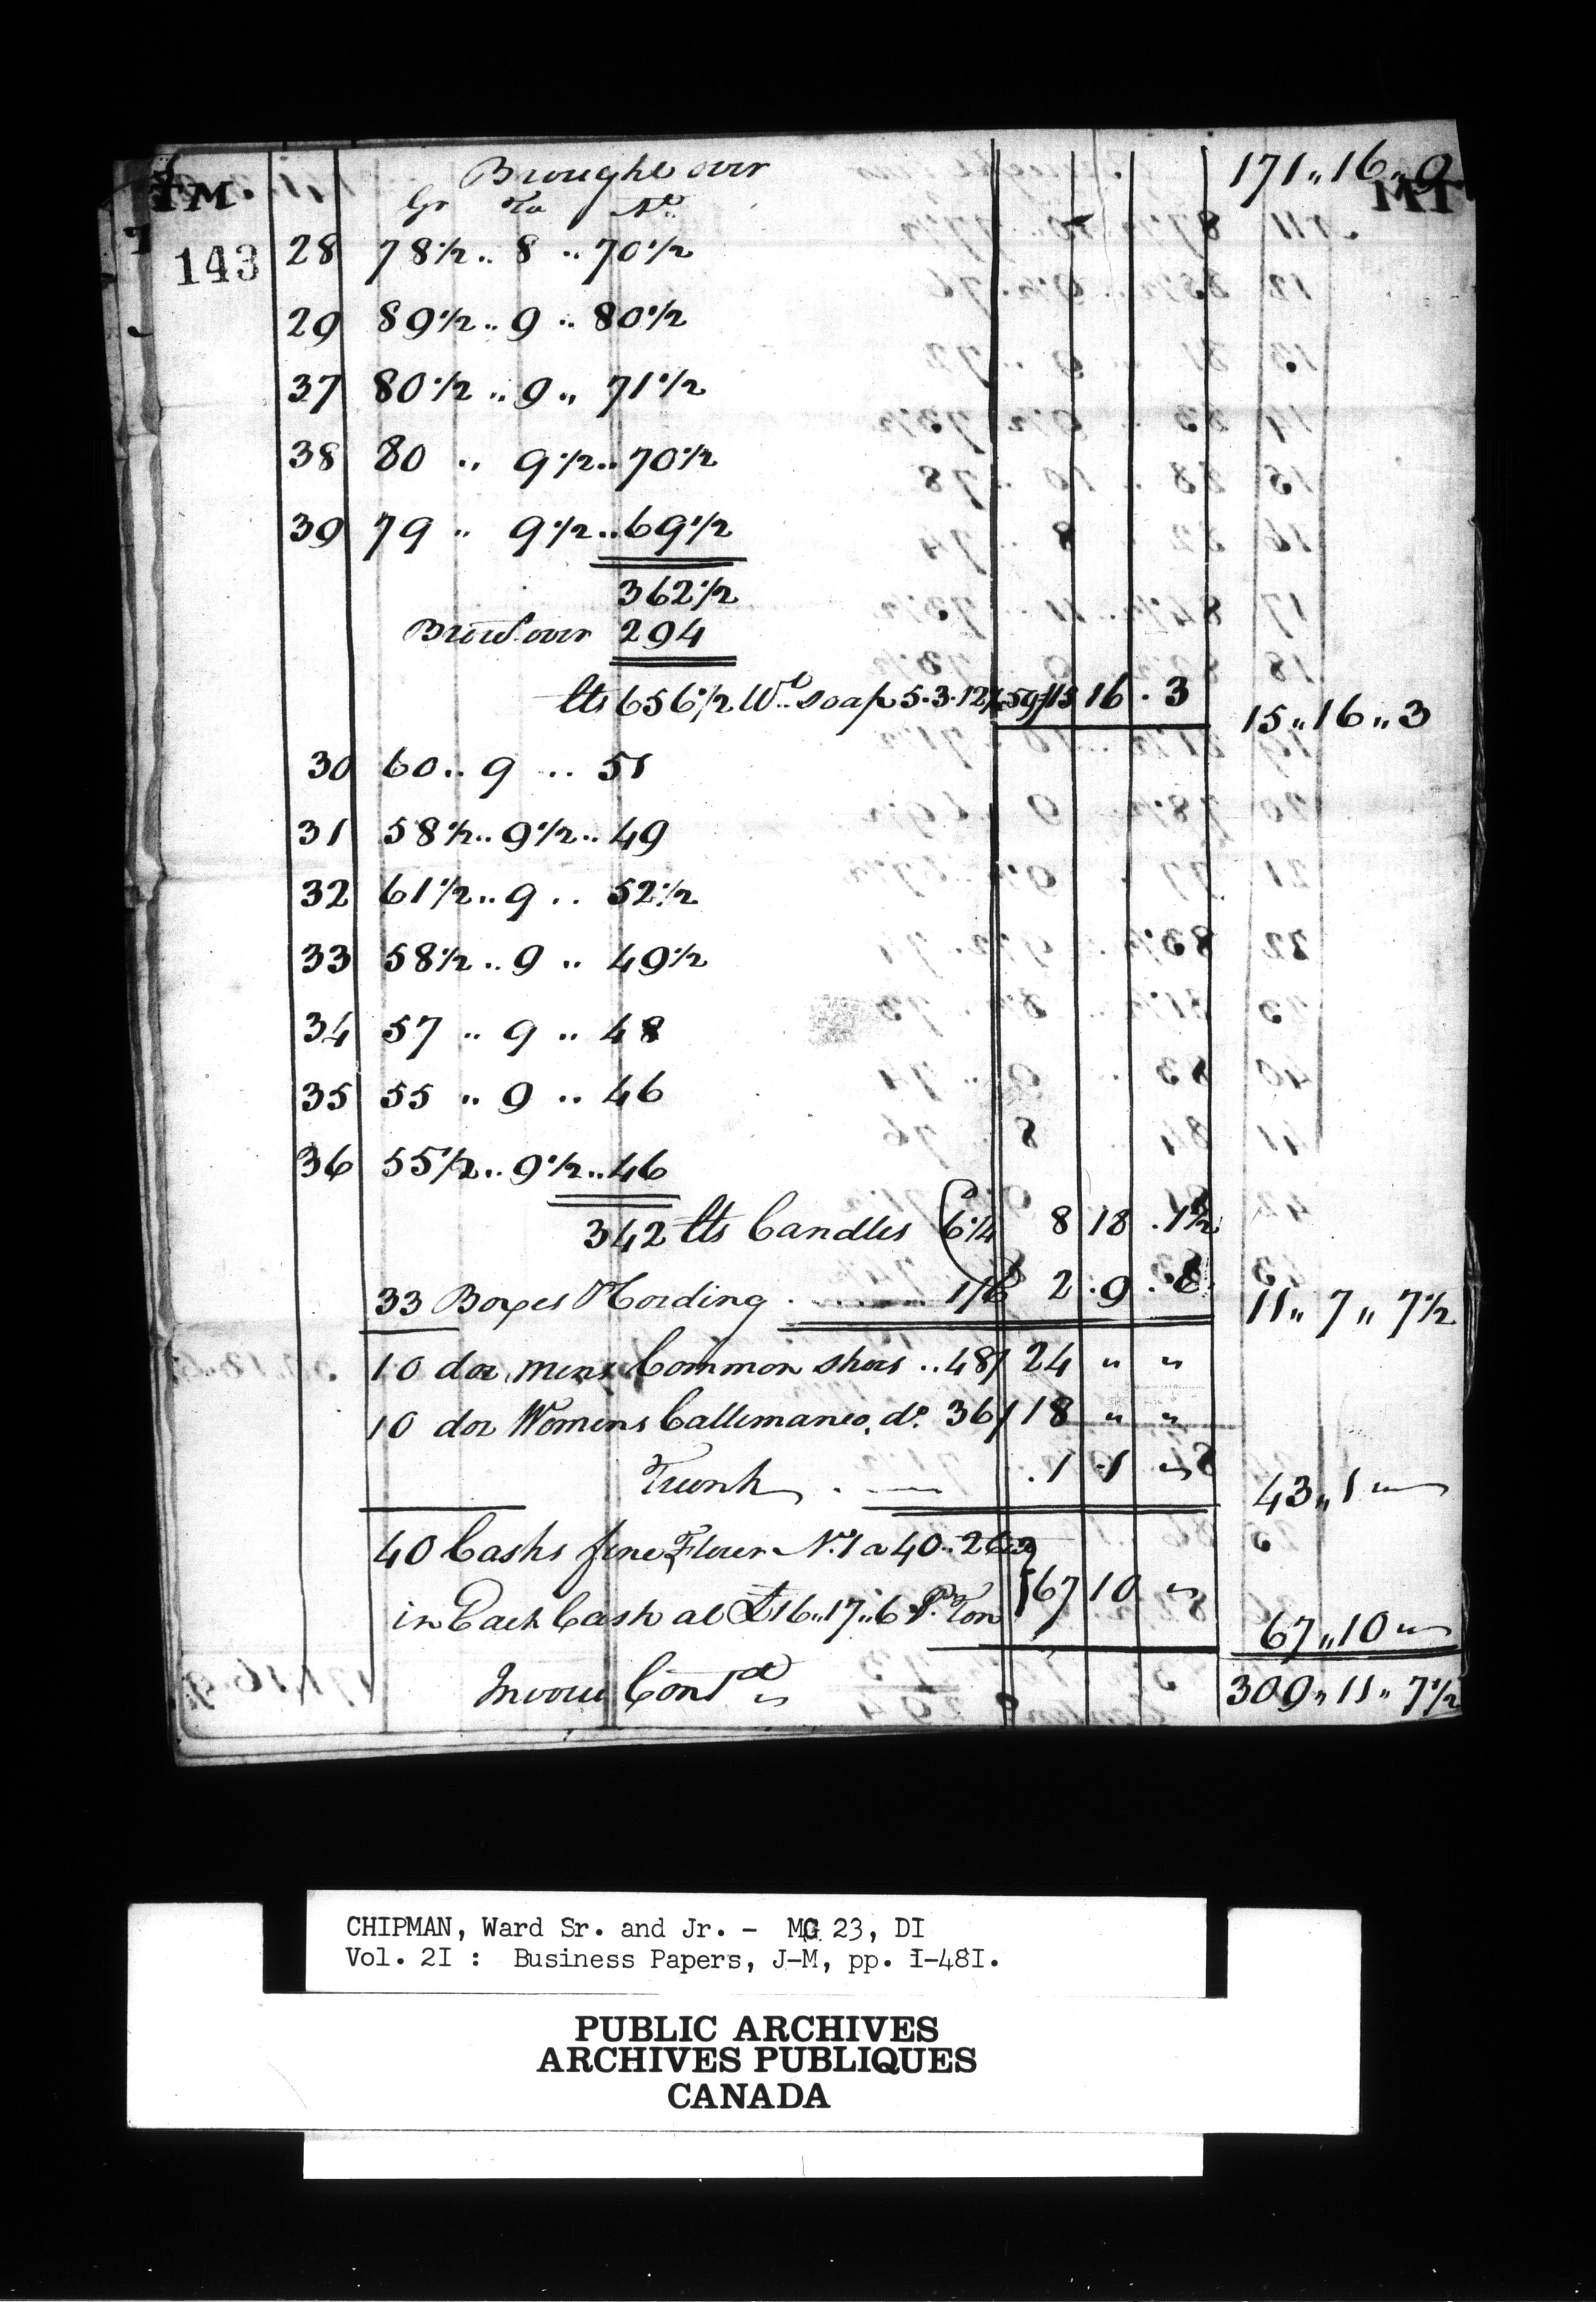 Brought over 171 " 16 " 9
TM. MT
Gr Ta Nt
143 28 78½ .. 8 .. 70½
29 89½ .. 9 .. 80½
37 80½ .. 9 .. 71½
38 80 .. 9½ .. 70½
39 79 .. 9½ .. 69½
362½
Brot. over 294
lts 656½ Wt. soap 5.3.12½ 59/ 15 16 . 3 15 " 16 " 3
30 60 .. 9 .. 51
31 58½ .. 9½ .. 49
32 61½ .. 9 .. 52½
33 58½ .. 9 .. 49½
34 57 .. 9 .. 48
35 55 .. 9 .. 46
36 55½ .. 9½ .. 46
342 lts Candles 6¼ 8 18 . 1½
33 Boxes Cording . 1/6 2 . 9 . 6 11 " 7 " 7½
10 doz mens Common shoes .. 48/ 24 " "
10 doz Womens Callimanco do. 36/ 18 " "
Trunk . 1 . 1 " 43 " 1 "
40 Casks fine Flour N.1 a 40 ..
in Each Cask at £16 " 17 " 6 Pr. Ton 67 10 " 67 " 10 "
Invoice Contd 309 " 11 " 7½
CHIPMAN, Ward Sr. and Jr. - MG 23, DI
Vol. 2I : Business Papers, J-M, pp. I-48I.
PUBLIC ARCHIVES
ARCHIVES PUBLIQUES
CANADA